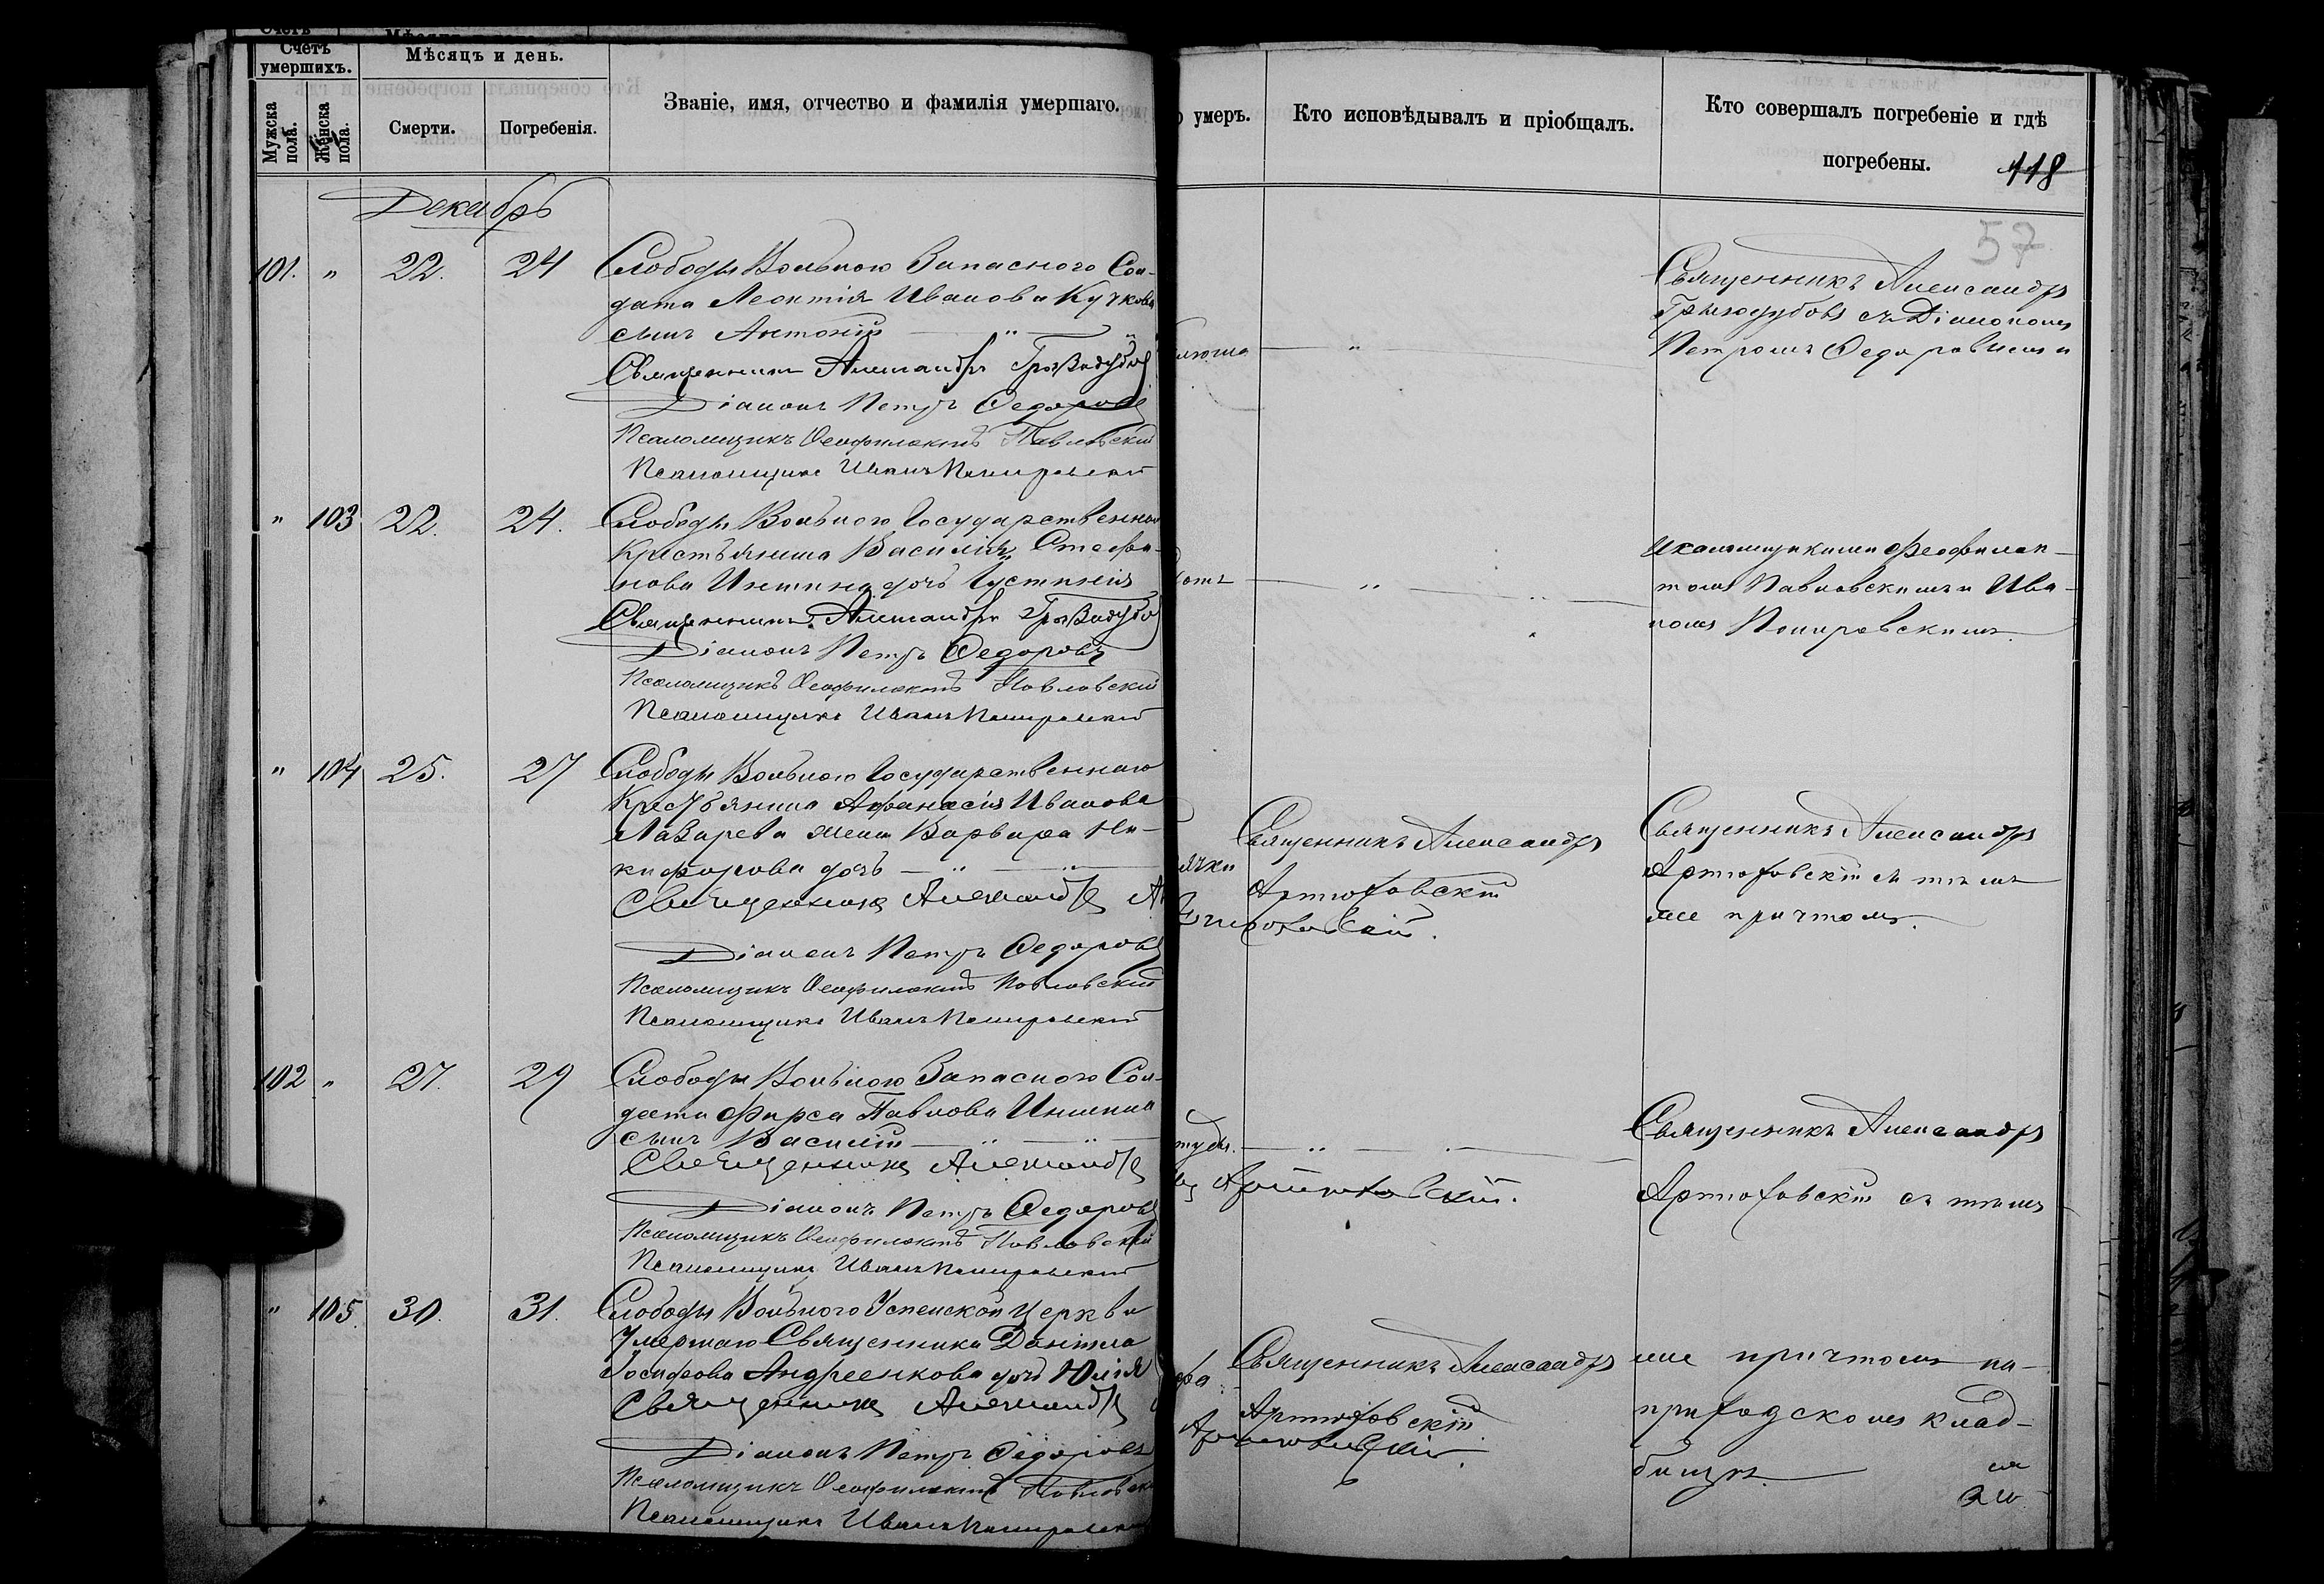 Счетъ умершихъ.
Мѣсяцъ и день.
Мужска пола.
Женска пола.
Смерти.
Погребенія.
Званіе, имя, отчество и фамилія умершаго.
умеръ.
Кто исповѣдывалъ и пріобщалъ.
Кто совершалъ погребеніе и гдѣ
погребены.
118
57
Декабрь
101. " 22. 24
Слободы Вольного Запасного Сол-
дата Леонтія Иванова Кучкова
сынъ Антоній
Священникъ Александръ
Діаконъ Петръ Федоровъ
Псаломщикъ Феофилактъ Павловскій
Псаломщикъ Иванъ
Священникъ Александръ
съ Діакономъ
Петромъ Федоровымъ и
" 103 22. 24.
Слободы Вольного Государственнаго
Крестьянина Василія Стефа-
нова дочь Іустинія
Священникъ Александръ
Діаконъ Петръ Федоровъ
Псаломщикъ Феофилактъ Павловскій
Псаломщикъ Иванъ
псаломщиками Феофилак-
томъ Павловскимъ и Ива-
номъ
" 104 25. 27
Слободы Вольного Государственнаго
Крестьянина Афанасія Иванова
Лазарева жена Варвара Ни-
кифорова дочь
Священникъ Александръ
Діаконъ Петръ Федоровъ
Псаломщикъ Феофилактъ Павловскій
Псаломщикъ Иванъ
Священникъ Александръ
Артюховскій
Священникъ Александръ
Артюховскій съ тѣмъ
же причтомъ.
102 " 27. 29
Слободы Вольного Запасного Сол-
дата Фирса Павлова
сынъ Василій
Священникъ Александръ
Артюховскій.
Діаконъ Петръ Федоровъ
Псаломщикъ Феофилактъ Павловскій
Псаломщикъ Иванъ
Священникъ Александръ
Артюховскій съ тѣмъ
" 105. 30. 31.
Слободы Вольного Успенской церкви
Умершаго Священника Даніила
Іосифова Андреенкова дочь Юлія
Священникъ Александръ
Артюховскій.
Діаконъ Петръ Федоровъ
Псаломщикъ Феофилактъ
Псаломщикъ Иванъ
Священникъ Александръ
Артюховскій
же причтомъ на
приходскомъ клад-
бищѣ.